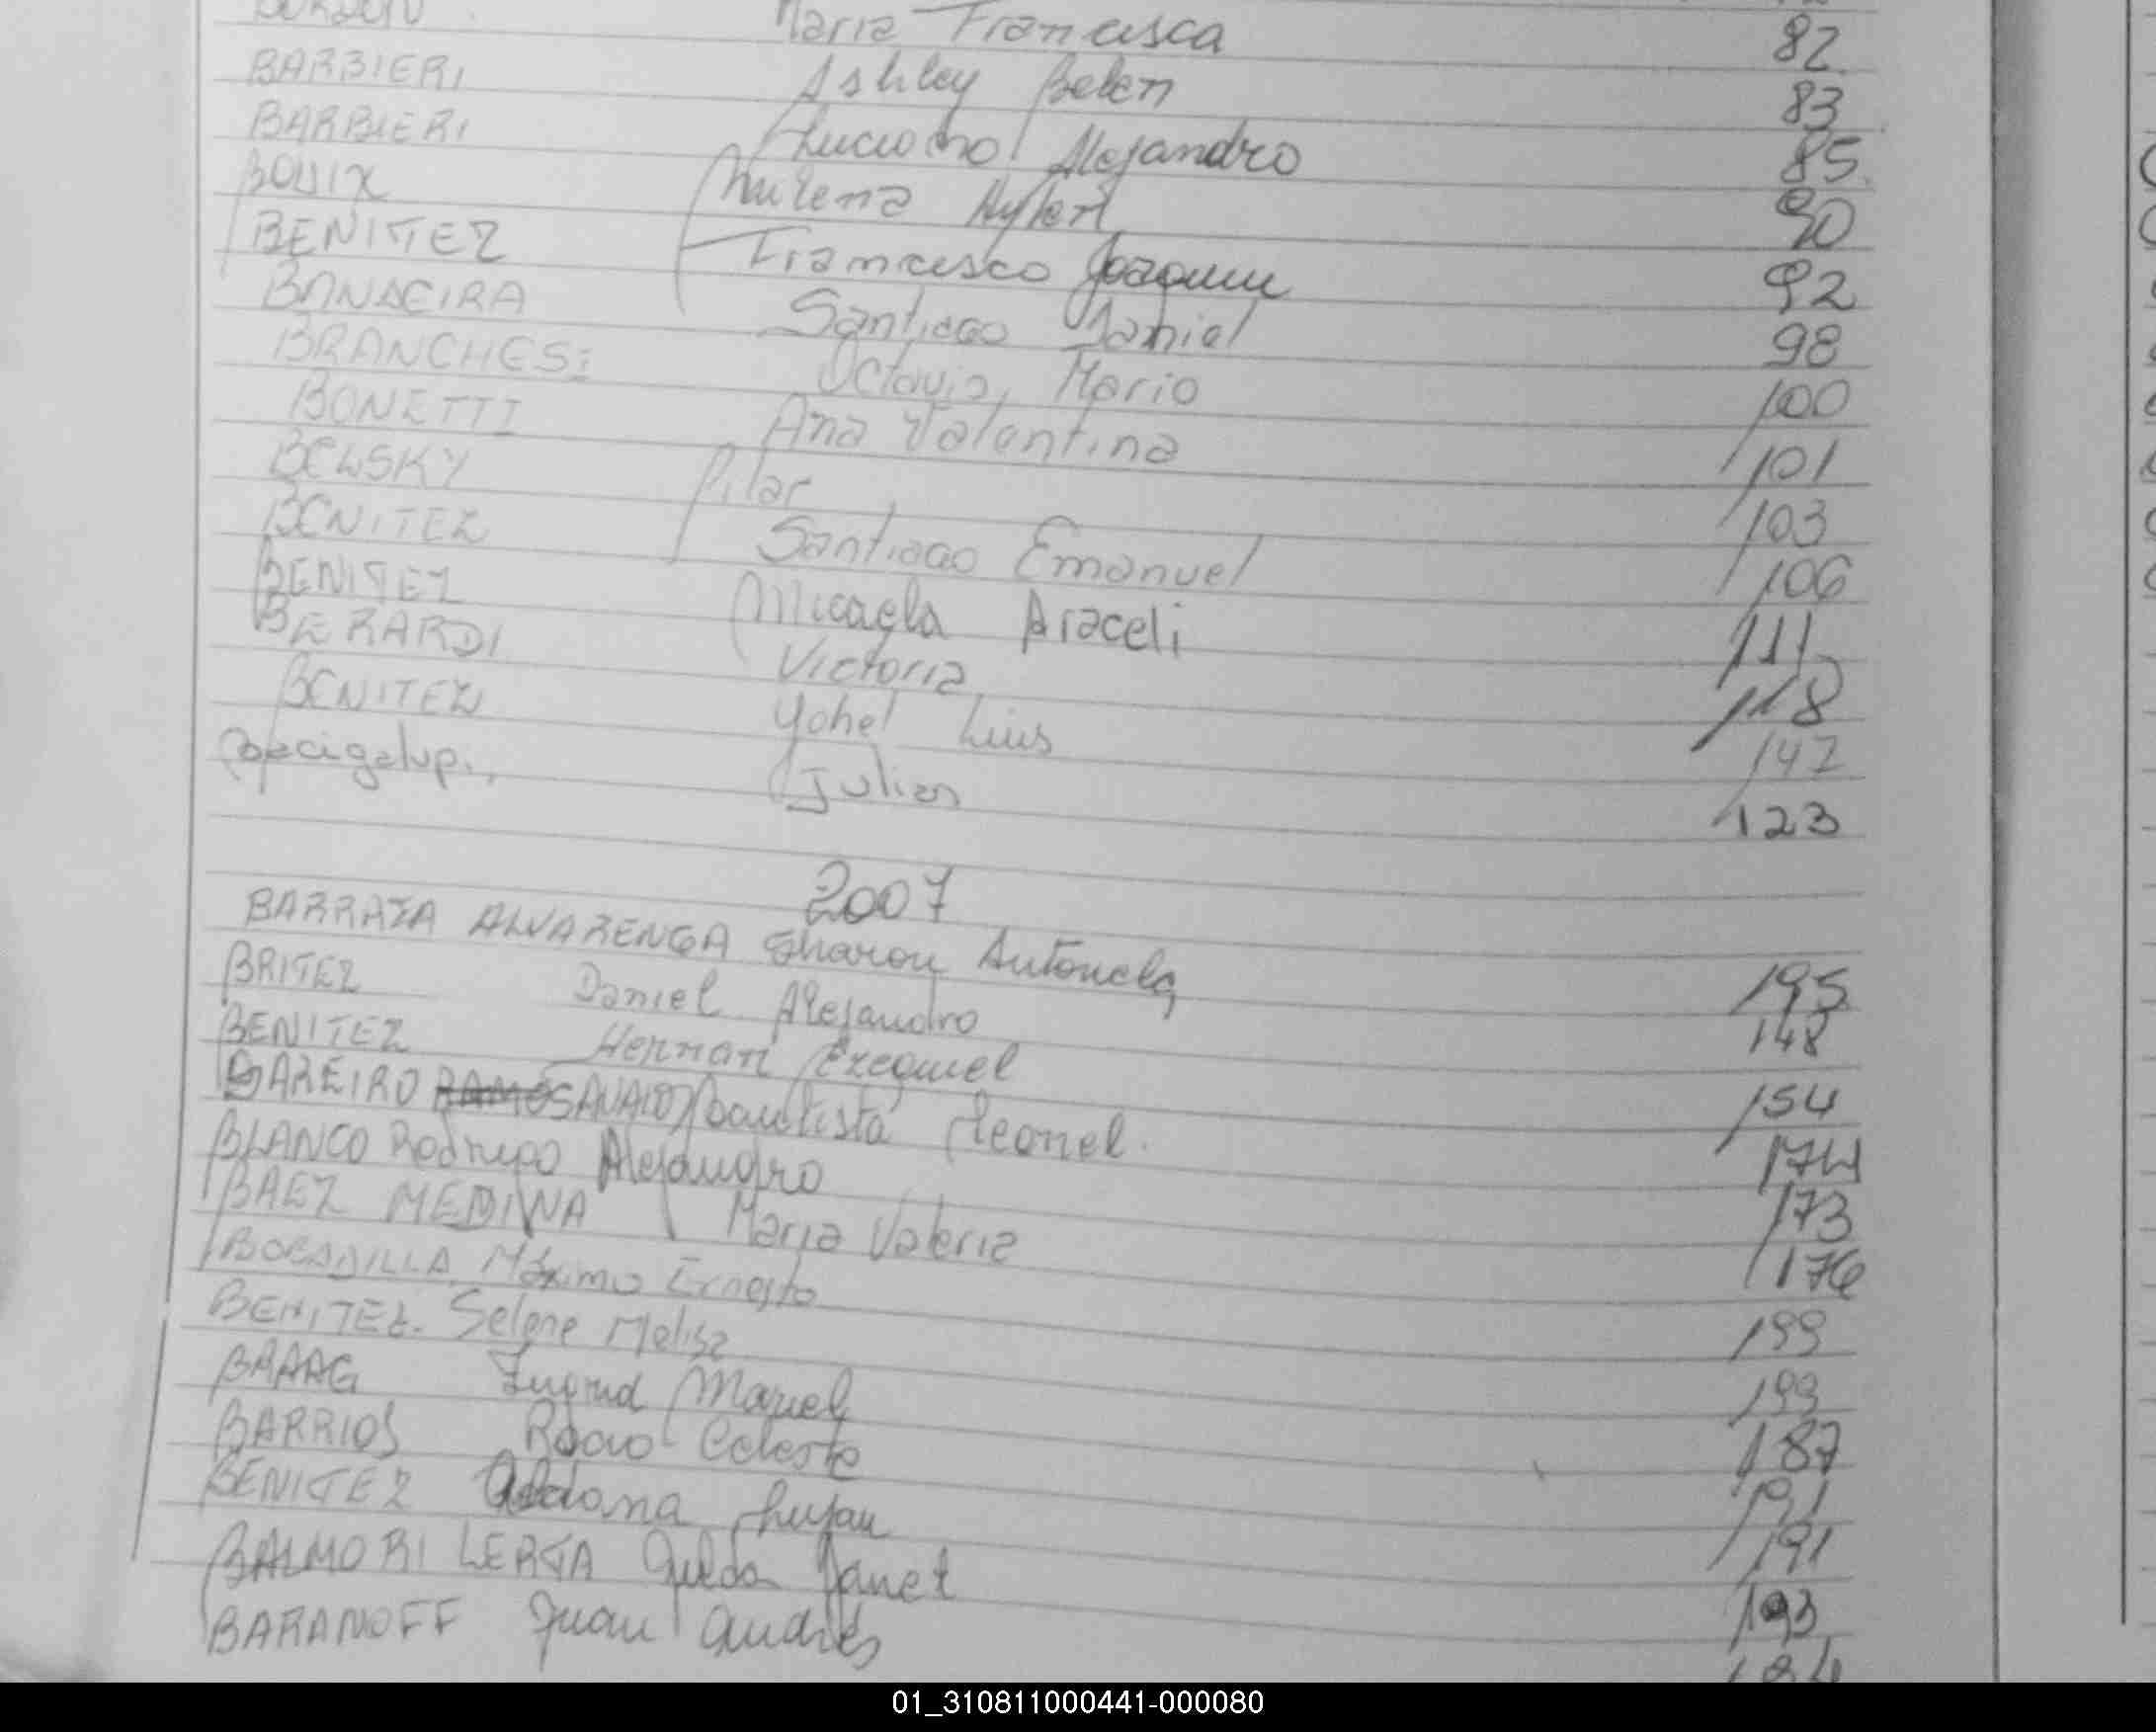 Maria Francisca 82
BARBIERI Ashley Belen 83
BARBIERI Luciano Alejandro 85
BOUIX Milena Aylen 90
BENITEZ Francesco Joaquin 92
BANDEIRA Santiago Daniel 98
BRANCHESI Octavio Mario 100
BONETTI Ana Valentina 101
BELSKY Pilar 103
BENITEZ Santiago Emanuel 106
BENITEZ Micaela Araceli 111
BERARDI Victoria 118
BENITEZ Yohel Luis 142
Bacigalupi Julian 123
2007
BARRAZA ALVARENGA Sharon Antonela 195
BRITEZ Daniel Alejandro 148
BENITEZ Hernan Ezequiel 154
BAREIRO bautista Leonel. 174
BLANCO Rodrigo Alejandro 173
BAEZ MEDINA Maria Valeria 176
BOBADILLA Máximo Ernesto 199
BENITEZ. Selene Melisa 199
BRAAG Ingrid Mariel 187
BARRIOS Rocio Celeste 191
BENITEZ Aldana Lujan 191
BALMORI LERTA Gilda Janet 193
BARANOFF Juan Andrés
01_310811000441-000080